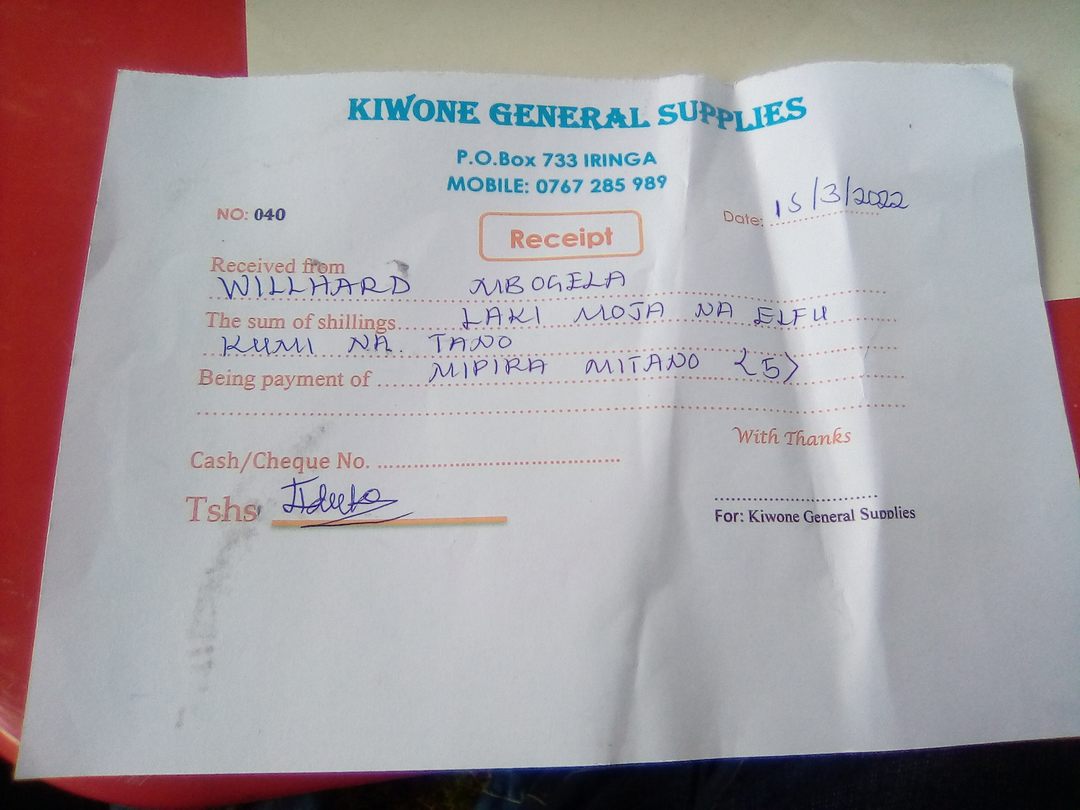 KIWONE GENERAL SUPPLIES
P.O.Box 733 IRINGA
MOBILE: 0767 285 989
NO: 040
Receipt
Date: 15/3/2022
Received from WILLHARD MBOGELA
The sum of shillings LAKI MOJA NA ELFU
KUMI NA. TANO
Being payment of MIPIRA MITANO <5>
With Thanks
Cash/Cheque No.
Tshs
For: Kiwone General Supplies